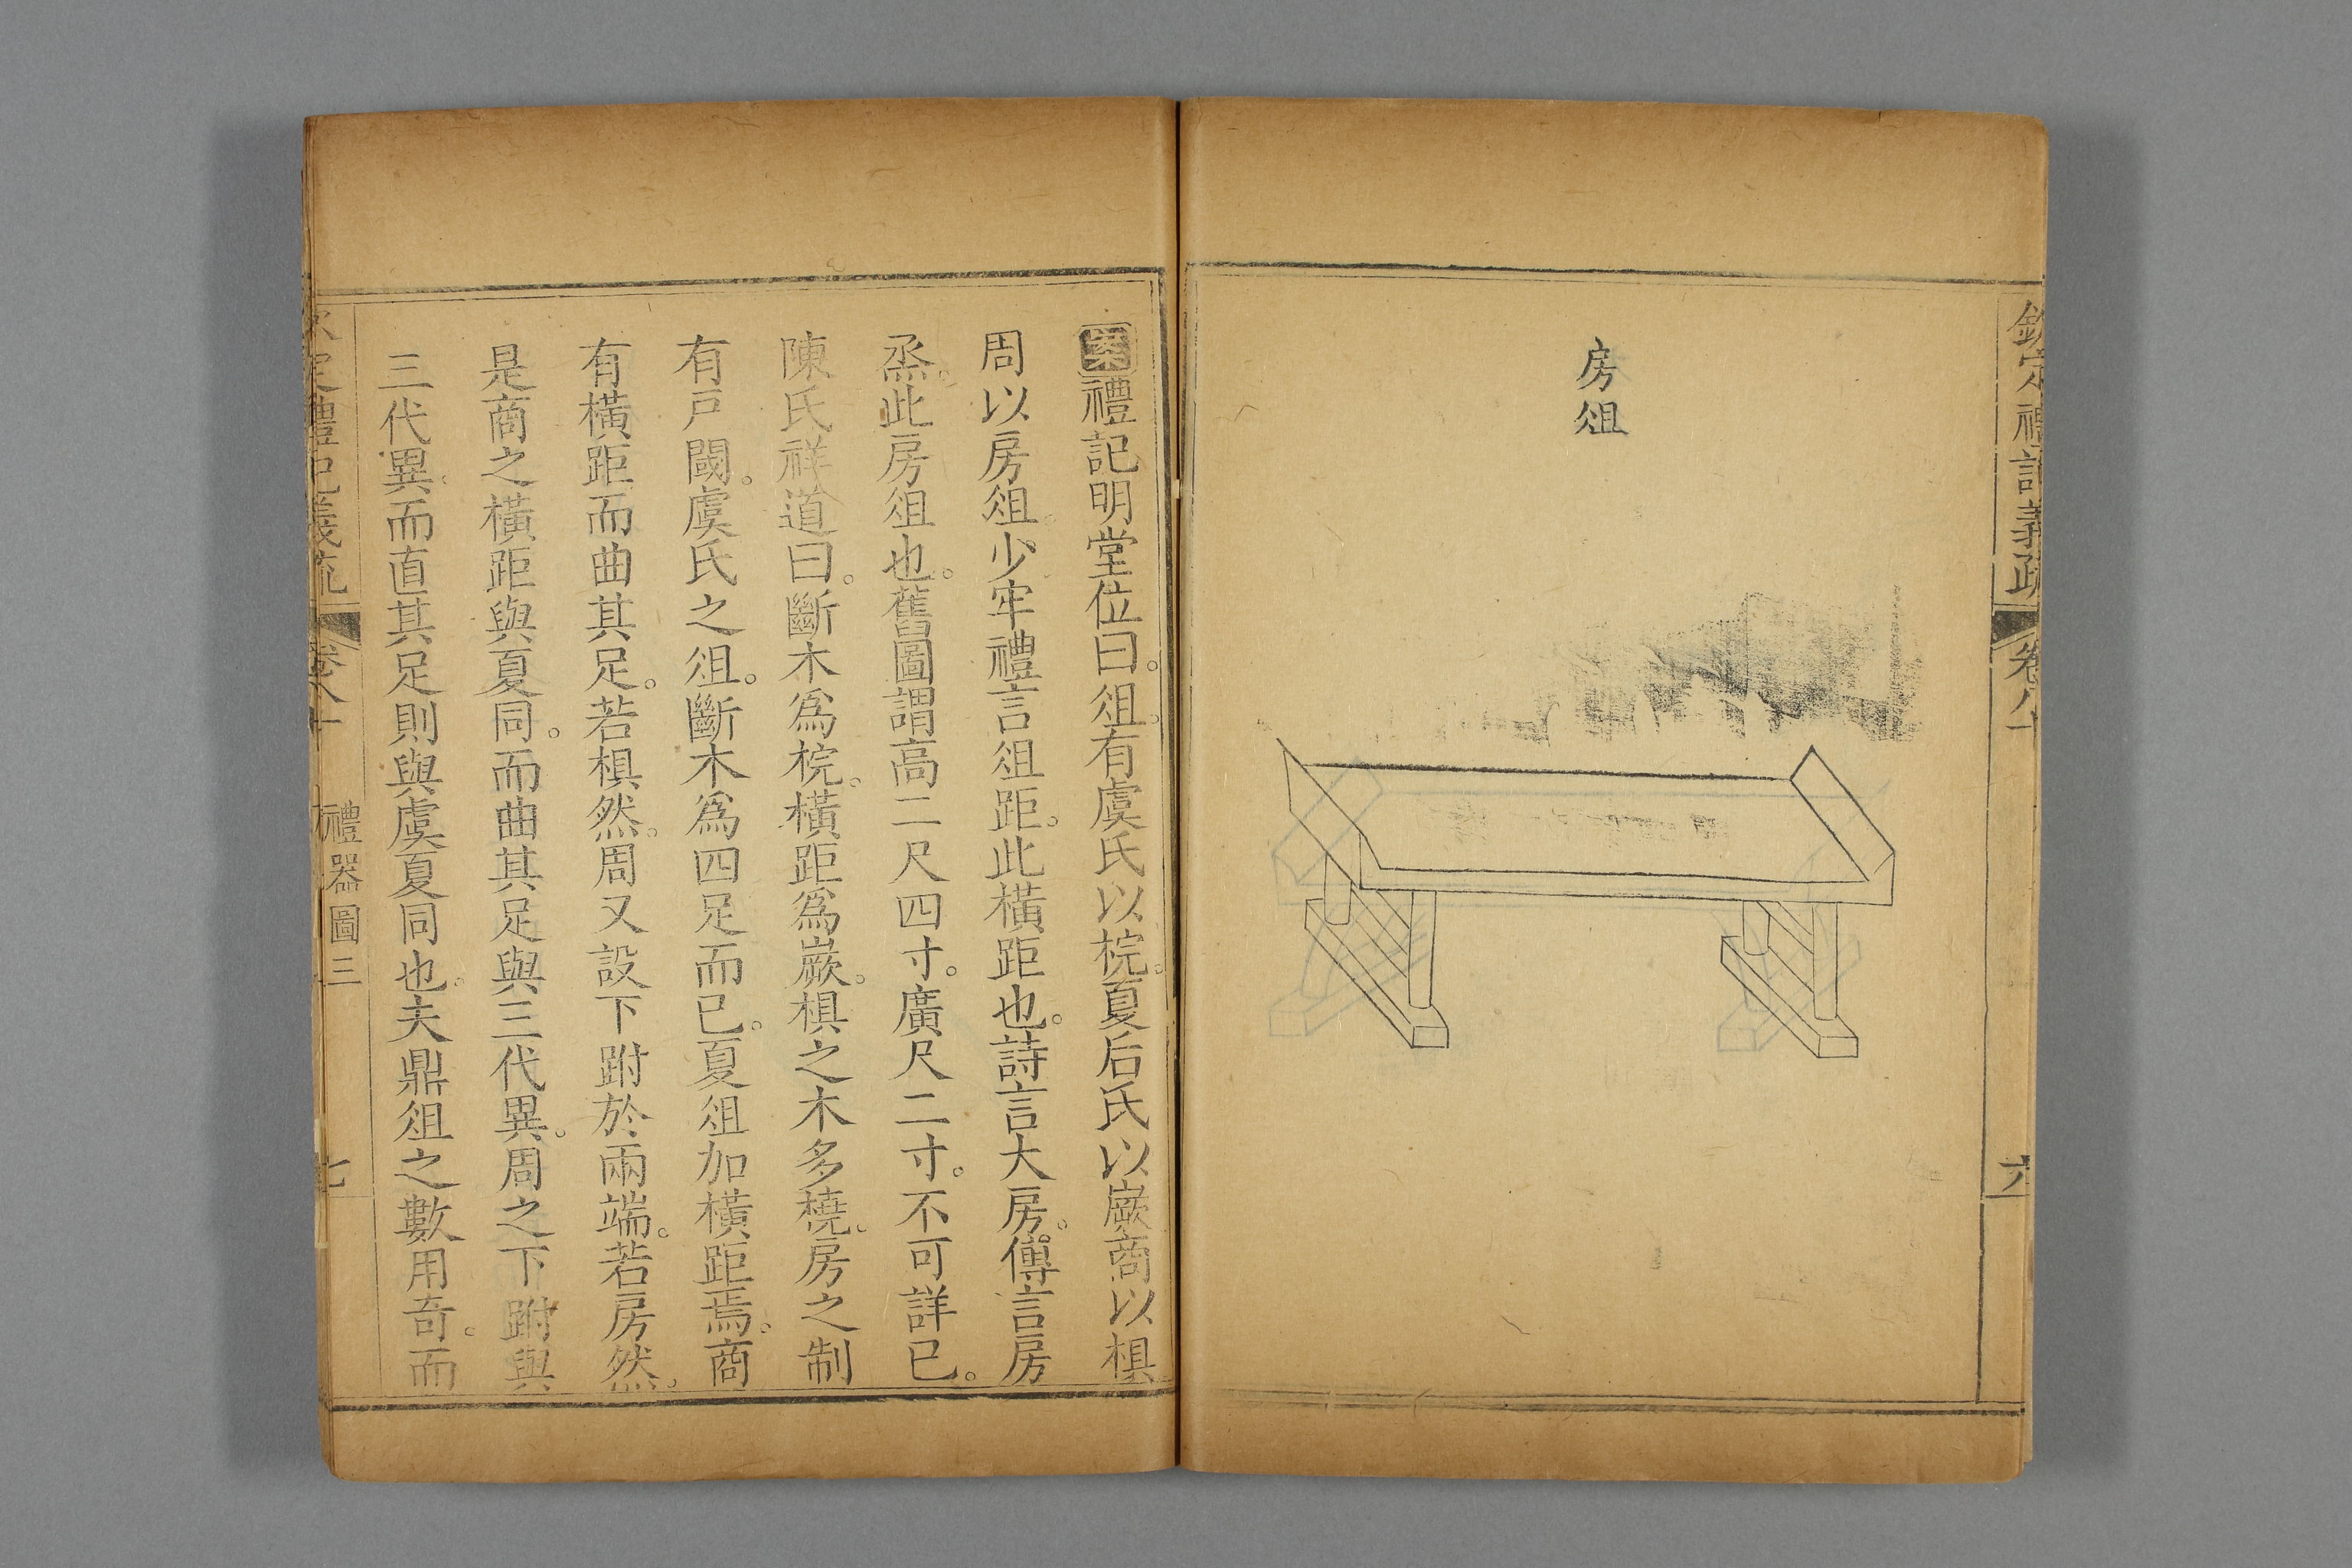 欽定禮記義疏 卷八十 六
房俎
案禮記明堂位曰。俎。有虞氏以梡。夏后氏以嶡。商以椇
周以房俎。少牢禮言俎距。此橫距也。詩言大房。傳言房
烝。此房俎也。舊圖謂高二尺四寸。廣尺二寸。不可詳已。
陳氏祥道曰。斷木爲梡。橫距爲嶡。椇之木多橈。房之制
有戸閾。虞氏之俎。斷木爲四足而已。夏俎加橫距焉。商
有橫距而曲其足。若椇然。周又設下跗於兩端。若房然。
是商之橫距與夏同。而曲其足與三代異。周之下跗與
三代異。而直其足則與虞夏同也。夫鼎俎之數用奇。而
欽定禮記義疏 卷八十 禮器圖三 七